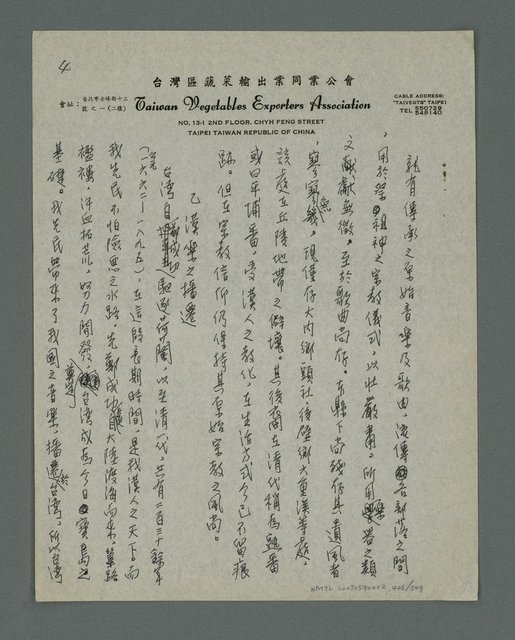 4
台灣區蔬菜輸出業同業公會
會址：台北市赤峰街十三號之一(二樓)
Taiwan Vegetables Exporters Association
CABLE ADDRESS:
"TAIVEGTS" TAIPEI
TEL 550729
548140
NO. 13-1 2ND FLOOR. CHYH FENG STREET
TAIPEI TAIWAN REPUBLIC OF CHINA
就有傳承之原始音樂及歌曲，流傳各部落之間
，用於祭祖神之宗教儀式，以壯嚴肅。所用樂器之類
文獻無徵。至於歌曲尚存。本縣下尚殘存其遺風者
，寥寥無幾，現僅存大內鄉頭社後壁鄉大重溪等處，
該處在丘陵地帶之僻壤。其後裔在清代稱為熟番
或曰平埔番，受漢人之教化，在生活方式今已不留痕
跡。但在宗教信仰仍保持其原始宗教之風尚。
乙 漢樂之播遷
台灣自鄭成功驅逐荷蘭，以至清一代，共有二百三十餘年
(一六六二—一八九五)，在這段長期時間，是我漢人之天下。而
我先民不怕險惡之水路，先鄭成功自大陸渡海而來，篳路
襤褸，汗血拓荒，努力開發台灣成為今日寶島之
基礎。我先民帶來了我國之音樂，播遷於台灣，所以台灣
NMTL 20070590002 406/509